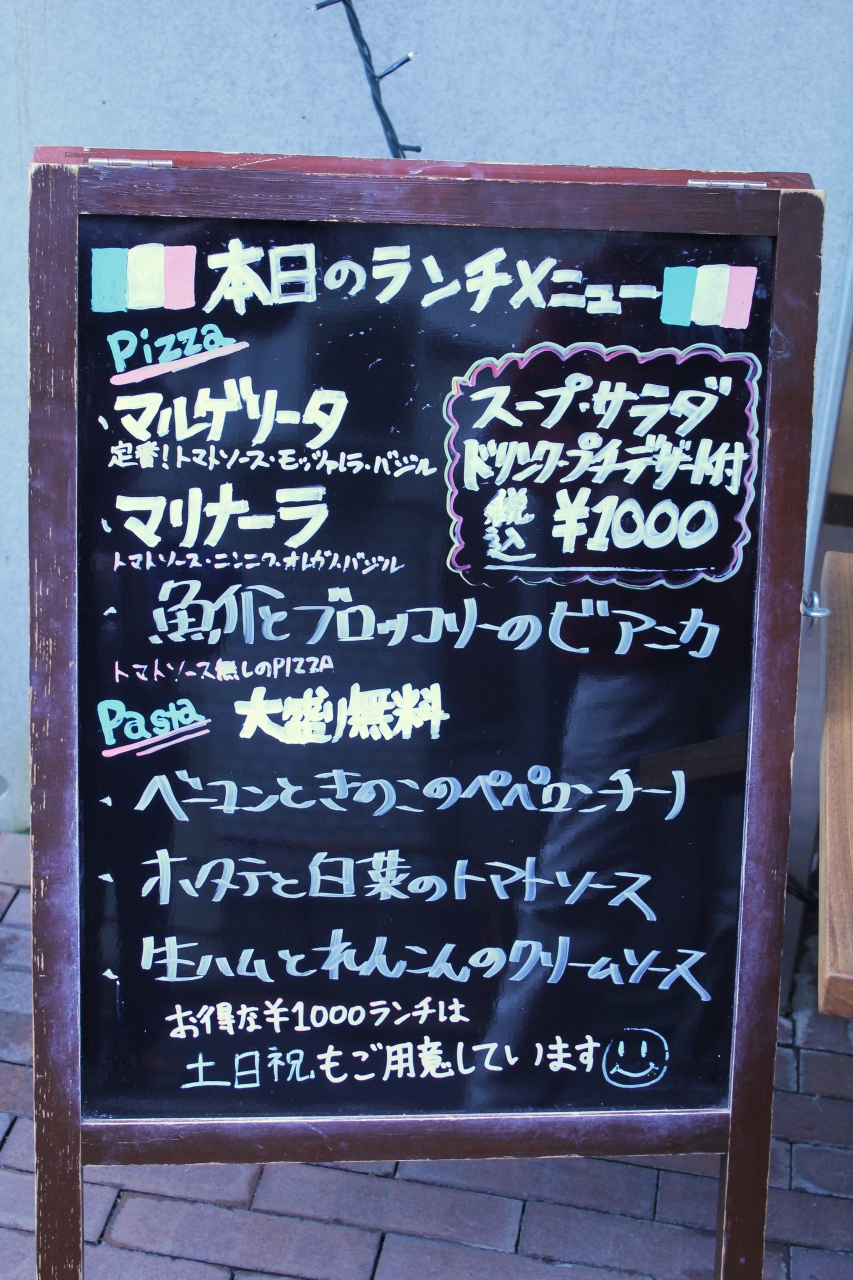 本日のランチメニュー
Pizza
・マルゲリータ
定番!トマトソース・モッツァレラ・バジル
・マリナーラ
トマトソース・ニンニク・オレガノ・バジル
・魚介とブロッコリーのビアンカ
トマトソース無しのPIZZA
スープ・サラダ
ドリンク・プチデザート付
税込 ¥1000
Pasta 大盛り無料
・ベーコンときのこのペペロンチーノ
・ホタテと白菜のトマトソース
・生ハムとれんこんのクリームソース
お得な¥1000ランチは
土日祝もご用意しています